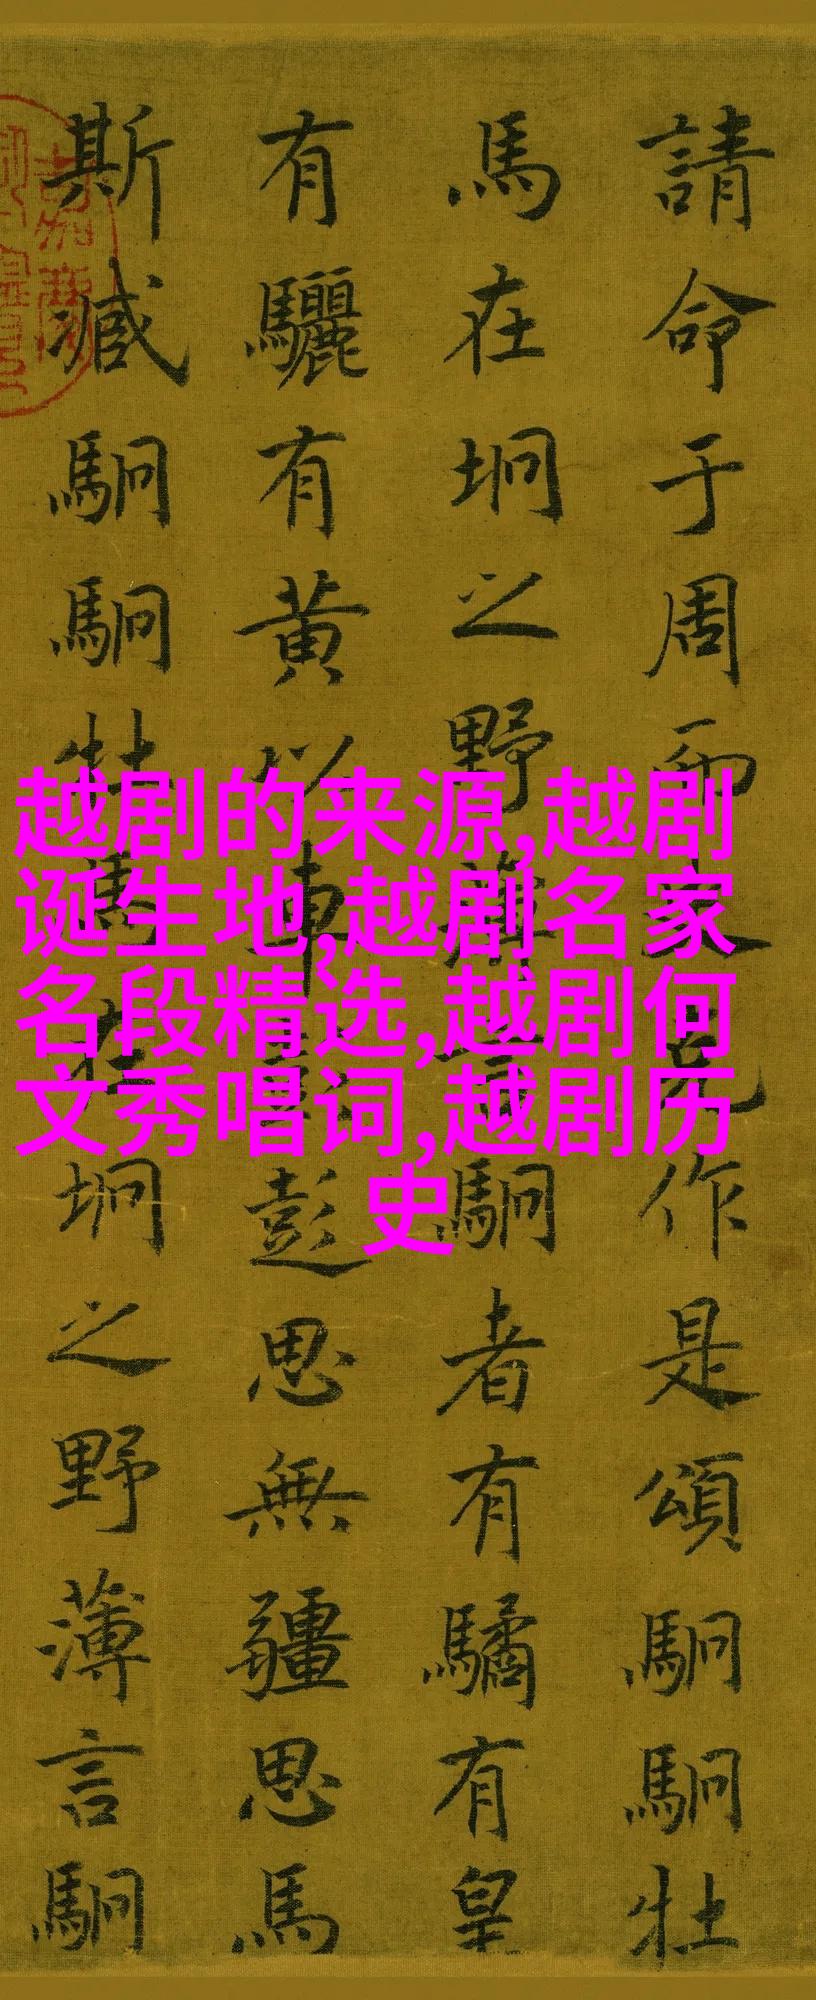 請命于周而史克作是頌駉駉牡
馬在坰之野薄言駉者有驈有皇
有驪有黄以車彭彭思無疆思馬
斯臧駉駉牡馬在坰之野薄言駉
越剧的来源,越剧
诞生地,越剧名家
名段精选,越剧何
文秀唱词,越剧历
史